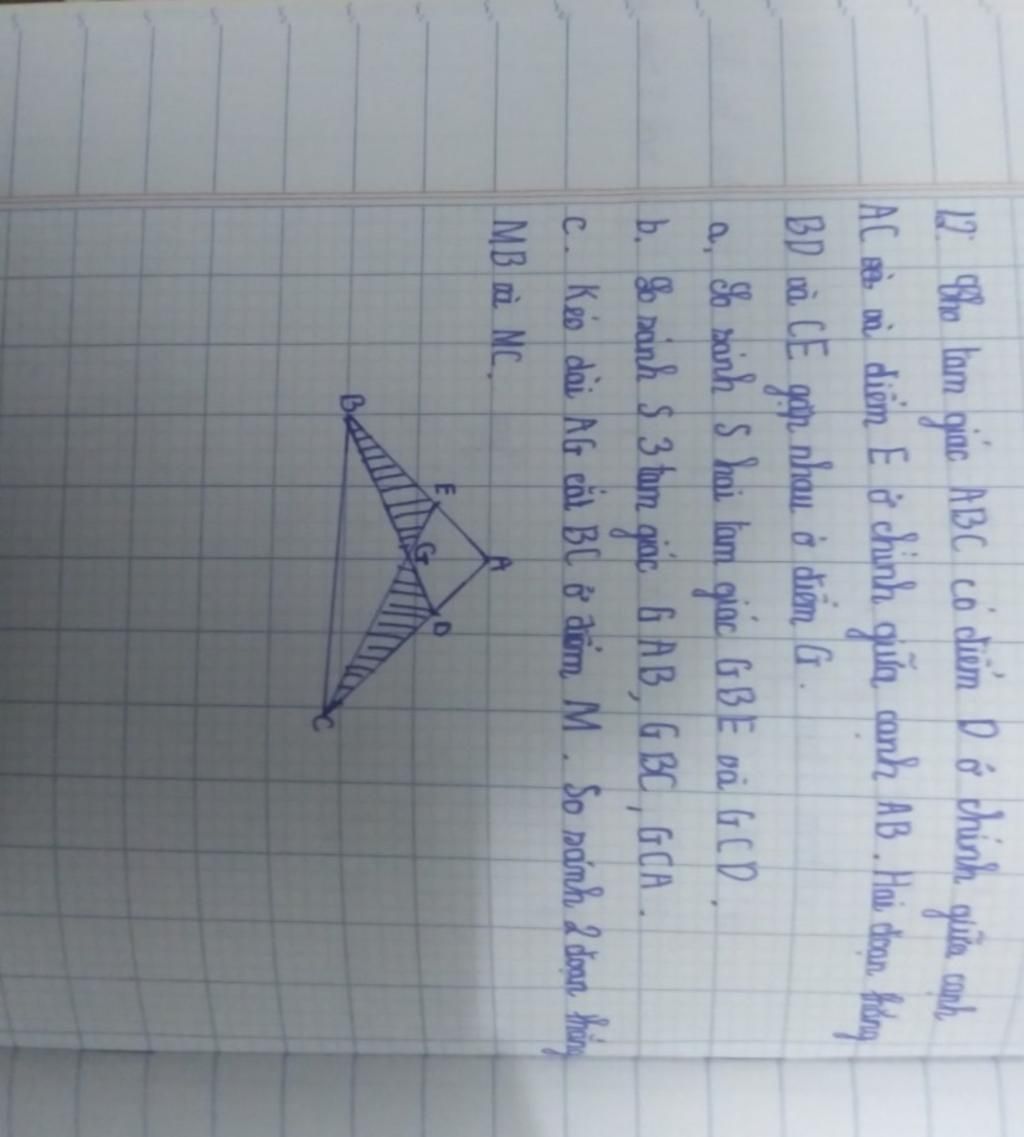 12. Cho tam giác ABC có điểm D ở chính giữa cạnh
AC và điểm E ở chính giữa cạnh AB. Hai đoạn thẳng
BD và CE gặp nhau ở điểm G.
a, So sánh S hai tam giác GBE và GCD.
b, So sánh S 3 tam giác GAB, GBC, GCA.
c. Kéo dài AG cắt BC ở điểm M. So sánh 2 đoạn thẳng
MB và MC.
A
E
D
G
B
C